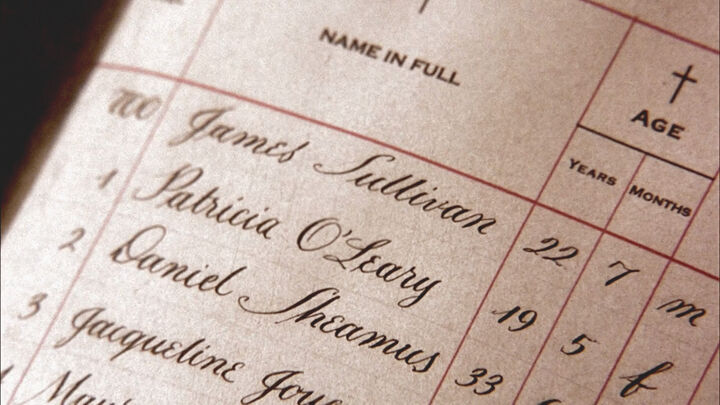 NAME IN FULL
†
AGE
YEARS MONTHS
700 James Sullivan 22 7 m
1 Patricia O'Leary 19 5 f
2 Daniel Sheamus 33
3 Jacqueline